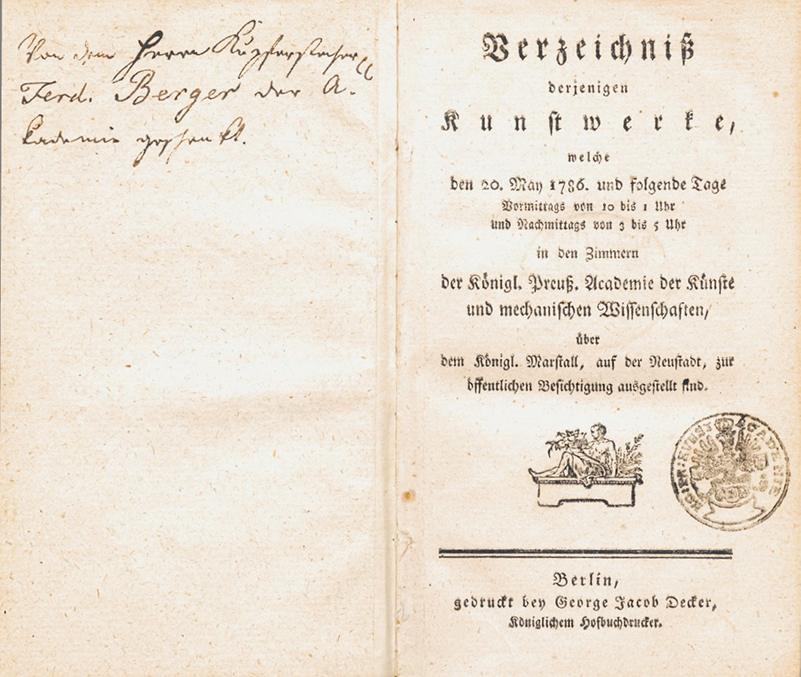 Von dem Herrn Kupferstecher
Ferd. Berger der A-
kademie geschenkt.
Verzeichniß
derjenigen
Kunstwerke,
welche
den 20. May 1786. und folgende Tage
Vormittags von 10 bis 1 Uhr
und Nachmittags von 3 bis 5 Uhr
in den Zimmern
der Königl. Preuß. Academie der Künste
und mechanischen Wissenschaften,
über
dem Königl. Marstall, auf der Neustadt, zur
öffentlichen Besichtigung ausgestellt sind.
KÖN. PR. KUNST ACADEMIE
Berlin,
gedruckt bey George Jacob Decker,
Königlichem Hofbuchdrucker.